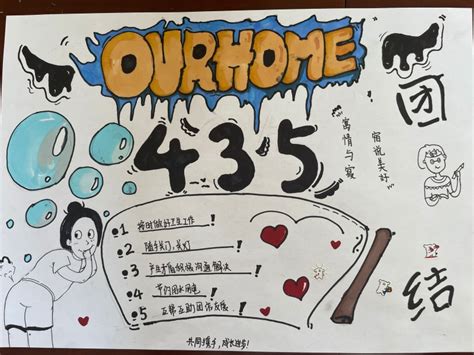 OURHOME
435
团结
寓情与寝
宿说美好
1 按时做好卫生工作!
2 随手关门,关灯!
3 产生矛盾积极沟通解决!
4 节约用水用电!
5 互帮互助团结友爱!
共同携手,成长进步!